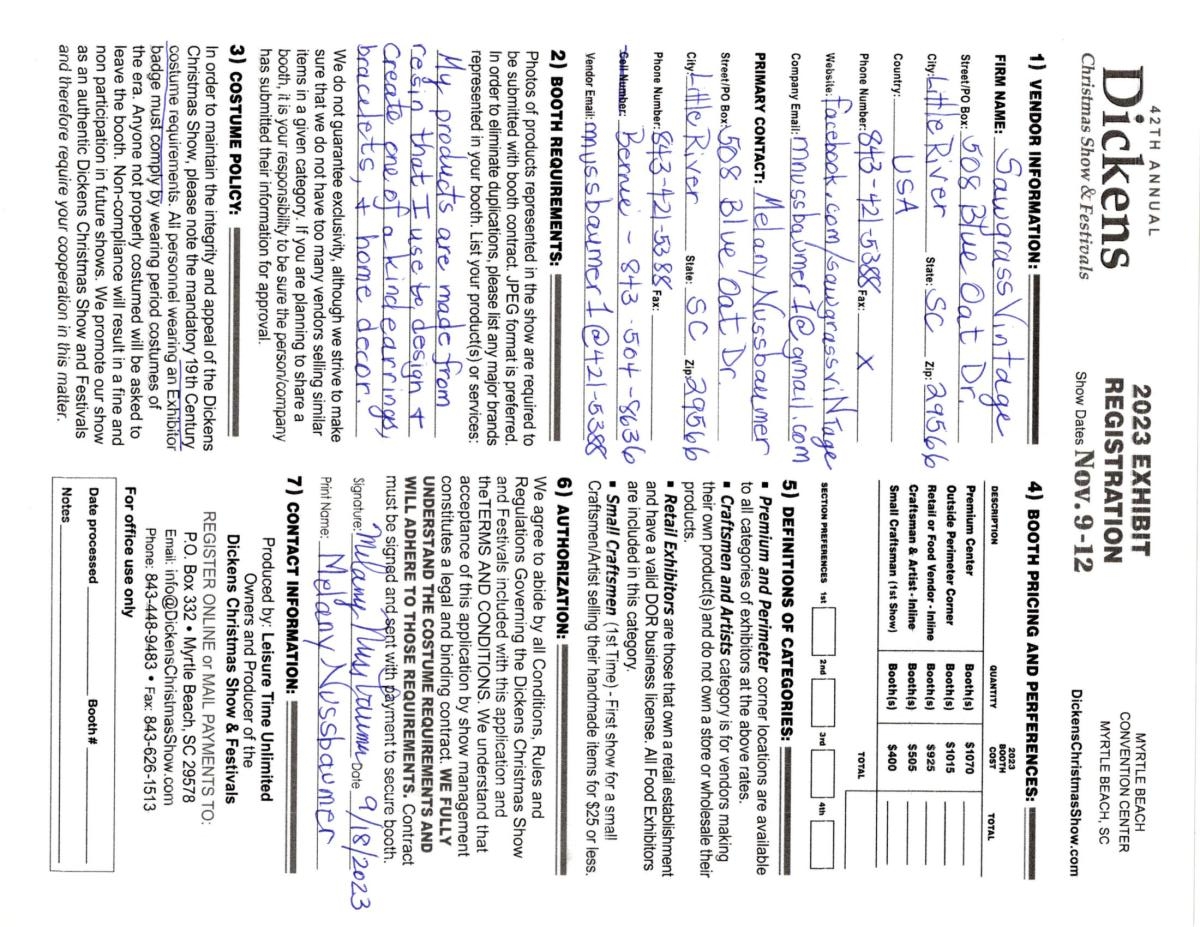 42TH ANNUAL
Dickens
Christmas Show & Festivals
2023 EXHIBIT
REGISTRATION
Show Dates Nov. 9-12
MYRTLE BEACH
CONVENTION CENTER
MYRTLE BEACH, SC
DickensChristmasShow.com
1) VENDOR INFORMATION:
FIRM NAME: Sawgrass Vintage
Street/PO Box: 508 Blue Oat Dr.
City: Little River State: SC Zip: 29566
Country: USA
Phone Number: 843-421-5388 Fax: X
Website: facebook.com/sawgrassviNtage
Company Email: mnussbaumer1@gmail.com
PRIMARY CONTACT: Melany Nussbaumer
Street/PO Box: 508 Blue Oat Dr.
City: Little River State: SC Zip: 29566
Phone Number: 843-421-5388 Fax:
Cell Number: Bernie - 843-504-8636
Vendor Email: mnussbaumer1@421-5388
2) BOOTH REQUIREMENTS:
Photos of products represented in the show are required to
be submitted with booth contract. JPEG format is preferred.
In order to eliminate duplications, please list any major brands
represented in your booth. List your product(s) or services:
My products are made from
resin that I use to design +
create one of a kind earrings,
bracelets, + home decor.
We do not guarantee exclusivity, although we strive to make
sure that we do not have too many vendors selling similar
items in a given category. If you are planning to share a
booth, it is your responsibility to be sure the person/company
has submitted their information for approval.
3) COSTUME POLICY:
In order to maintain the integrity and appeal of the Dickens
Christmas Show, please note the mandatory 19th Century
costume requirements. All personnel wearing an Exhibitor
badge must comply by wearing period costumes of
the era. Anyone not properly costumed will be asked to
leave the booth. Non-compliance will result in a fine and
non participation in future shows. We promote our show
as an authentic Dickens Christmas Show and Festivals
and therefore require your cooperation in this matter.
4) BOOTH PRICING AND PERFERENCES:
DESCRIPTION QUANTITY 2023 BOOTH COST TOTAL
Premium Center Booth(s) $1070
Outside Perimeter Corner Booth(s) $1015
Retail or Food Vendor - Inline Booth(s) $925
Craftsman & Artist - Inline Booth(s) $505
Small Craftsman (1st Show) Booth(s) $400
TOTAL
SECTION PREFERENCES 1st 2nd 3rd 4th
5) DEFINITIONS OF CATEGORIES:
▪ Premium and Perimeter corner locations are available
to all categories of exhibitors at the above rates.
▪ Craftsmen and Artists category is for vendors making
their own product(s) and do not own a store or wholesale their
products.
▪ Retail Exhibitors are those that own a retail establishment
and have a valid DOR business license. All Food Exhibitors
are included in this category.
▪ Small Craftsmen (1st Time) - First show for a small
Craftsmen/Artist selling their handmade items for $25 or less.
6) AUTHORIZATION:
We agree to abide by all Conditions, Rules and
Regulations Governing the Dickens Christmas Show
and Festivals included with this application and
theTERMS AND CONDITIONS. We understand that
acceptance of this application by show management
constitutes a legal and binding contract. WE FULLY
UNDERSTAND THE COSTUME REQUIREMENTS AND
WILL ADHERE TO THOSE REQUIREMENTS. Contract
must be signed and sent with payment to secure booth.
Signature: Melany Nussbaumer Date 9/18/2023
Print Name: Melany Nussbaumer
7) CONTACT INFORMATION:
Produced by: Leisure Time Unlimited
Owners and Producer of the
Dickens Christmas Show & Festivals
REGISTER ONLINE or MAIL PAYMENTS TO:
P.O. Box 332 • Myrtle Beach, SC 29578
Email: info@DickensChristmasShow.com
Phone: 843-448-9483 • Fax: 843-626-1513
For office use only
Date processed Booth#
Notes